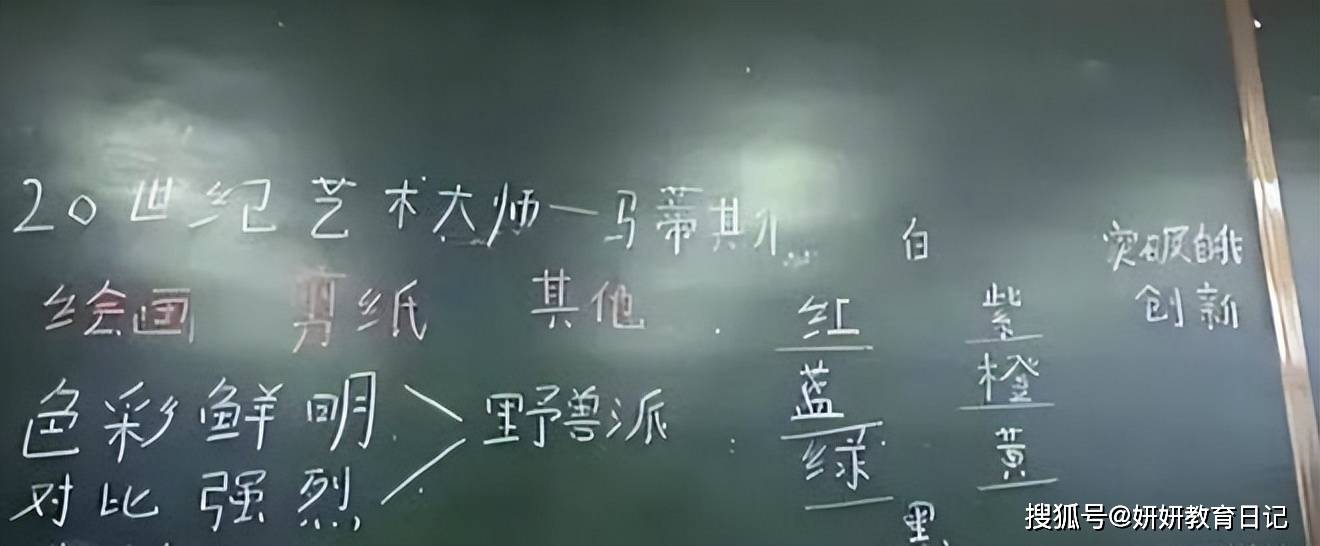 20世纪艺术大师—马蒂其
绘画 剪纸 其他
色彩鲜明
对比强烈
野兽派
白
红 紫
蓝 橙
绿 黄
黑
创新
搜狐号@妍妍教育日记